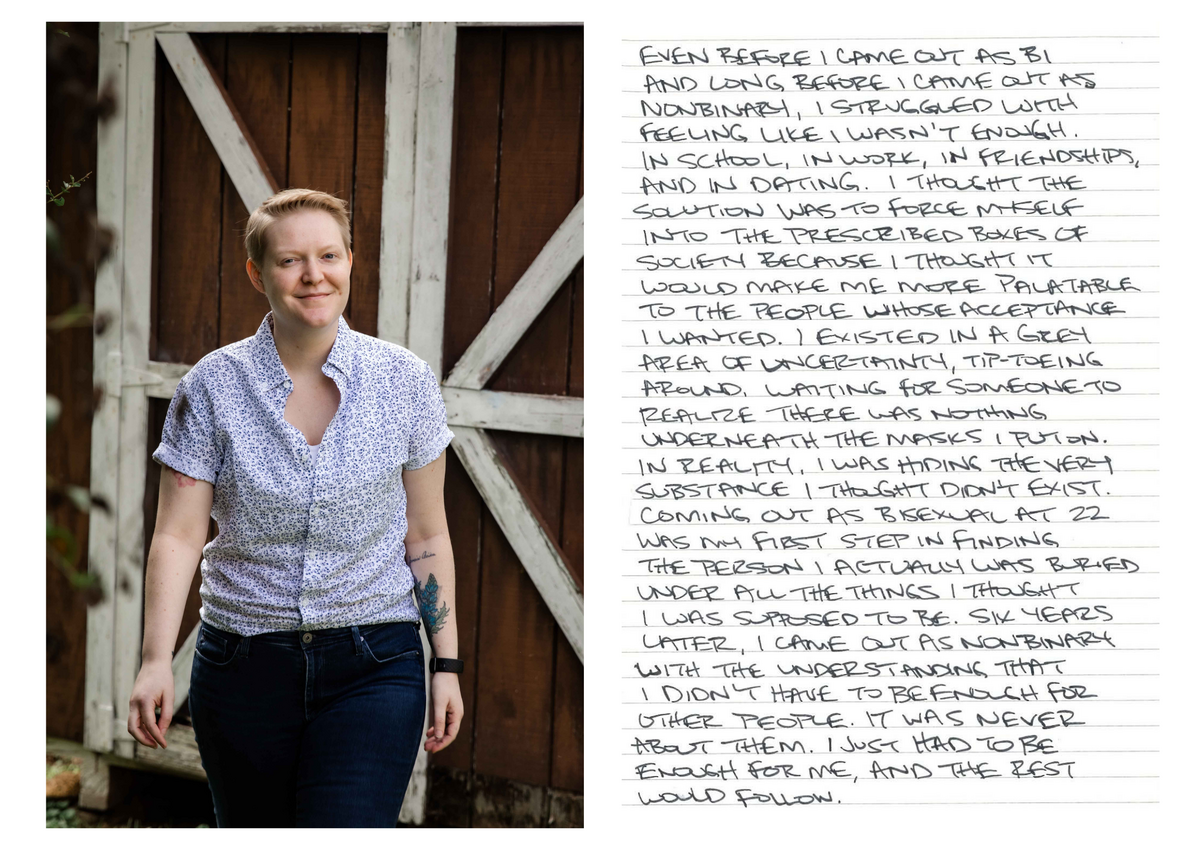 EVEN BEFORE I CAME OUT AS BI
AND LONG BEFORE I CAME OUT AS
NONBINARY, I STRUGGLED WITH
FEELING LIKE I WASN'T ENOUGH.
IN SCHOOL, IN WORK, IN FRIENDSHIPS,
AND IN DATING. I THOUGHT THE
SOLUTION WAS TO FORCE MYSELF
INTO THE PRESCRIBED BOXES OF
SOCIETY BECAUSE I THOUGHT IT
WOULD MAKE ME MORE PALATABLE
TO THE PEOPLE WHOSE ACCEPTANCE
I WANTED. I EXISTED IN A GREY
AREA OF UNCERTAINTY, TIP-TOEING
AROUND, WAITING FOR SOMEONE TO
REALIZE THERE WAS NOTHING
UNDERNEATH THE MASKS I PUT ON.
IN REALITY, I WAS HIDING THE VERY
SUBSTANCE I THOUGHT DIDN'T EXIST.
COMING OUT AS BISEXUAL AT 22
WAS MY FIRST STEP IN FINDING
THE PERSON I ACTUALLY WAS BURIED
UNDER ALL THE THINGS I THOUGHT
I WAS SUPPOSED TO BE. SIX YEARS
LATER, I CAME OUT AS NONBINARY
WITH THE UNDERSTANDING THAT
I DIDN'T HAVE TO BE ENOUGH FOR
OTHER PEOPLE. IT WAS NEVER
ABOUT THEM. I JUST HAD TO BE
ENOUGH FOR ME, AND THE REST
WOULD FOLLOW.